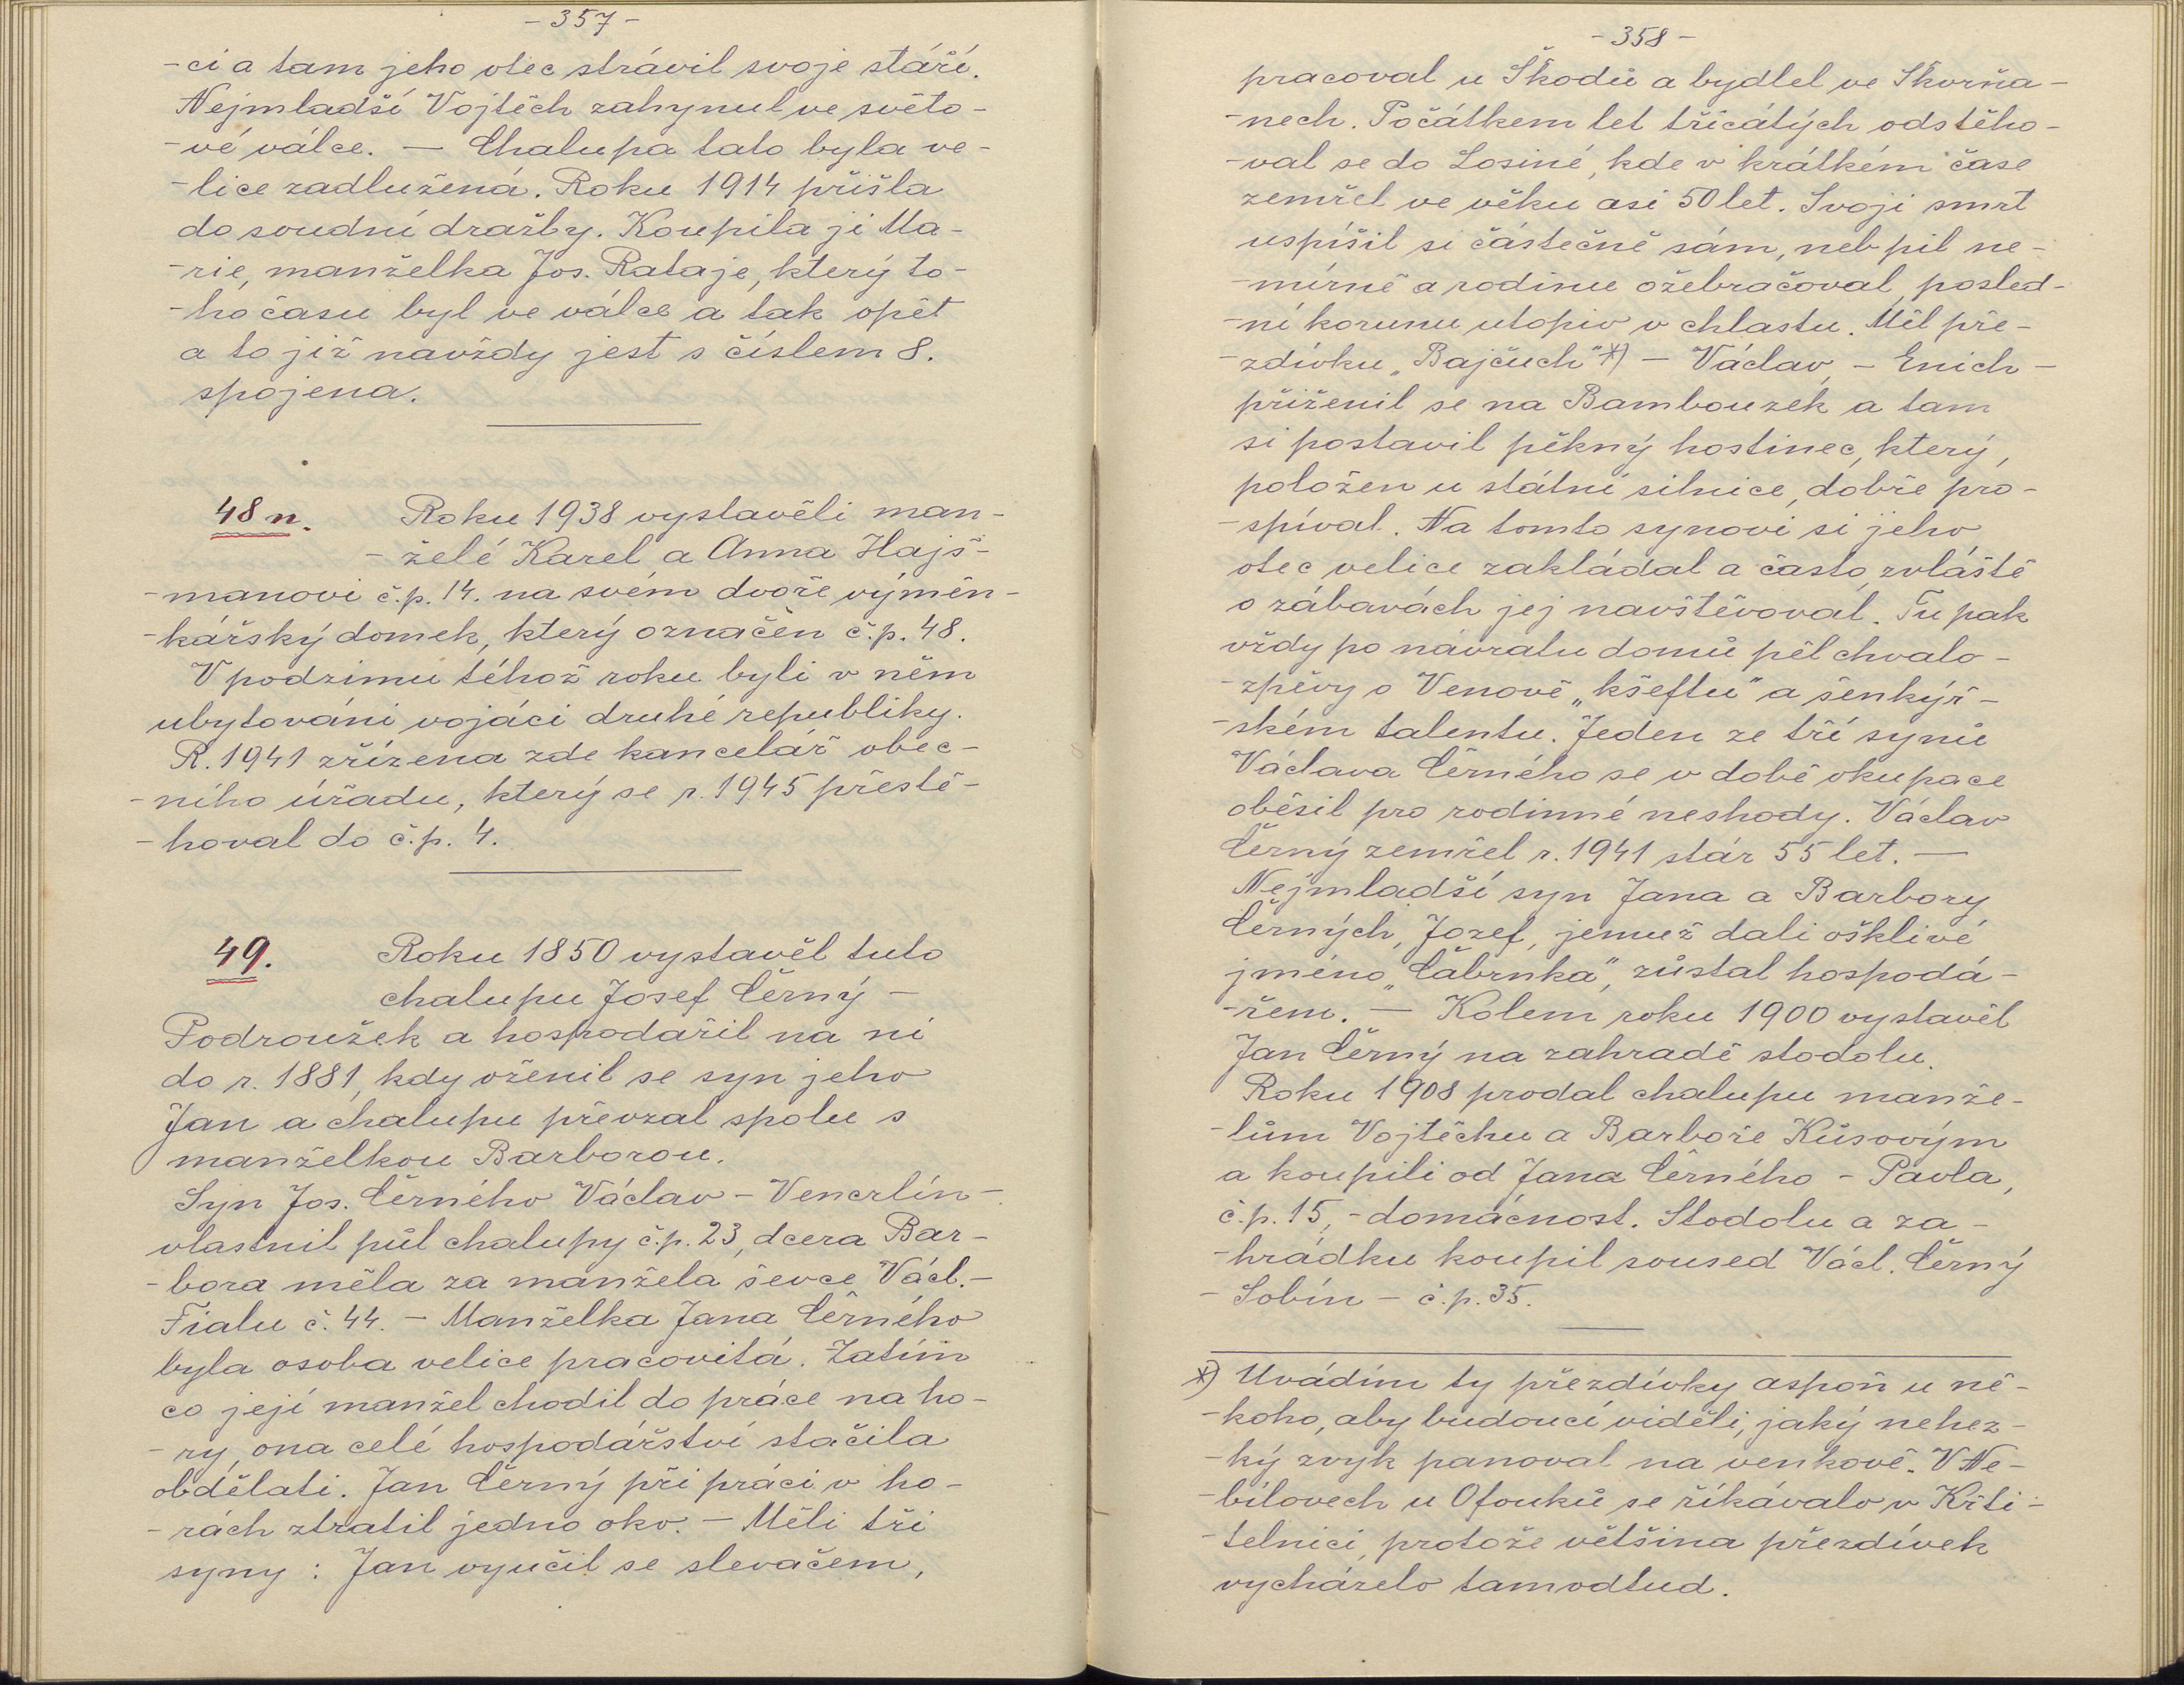 - 357 -
- ci a tam jeho otec strávil svoje stáří.
Nejmladší Vojtěch zahynul ve světo -
- vé válce. — Chalupa tato byla ve -
- lice zadlužená. Roku 1914 přišla
do soudní dražby. Koupila ji Ma -
- rie, manželka Jos. Rataje, který to -
- ho času byl ve válce a tak opět
a to již navždy jest s číslem 8.
spojena.
48 n. Roku 1938 vystavěli man -
- želé Karel a Anna Hajš -
- manovi č.p. 14. na svém dvoře výměn -
- kářský domek, který označen č.p. 48.
V podzimu téhož roku byli v něm
ubytováni vojáci druhé republiky.
R. 1941 zřízena zde kancelář obec -
- ního úřadu, který se r. 1945 přestě -
- hoval do č.p. 4.
49. Roku 1850 vystavěl tuto
chalupu Josef Černý -
Podroužek a hospodařil na ní
do r. 1881, kdy oženil se syn jeho
Jan a chalupu převzal spolu s
manželkou Barborou.
Syn Jos. Černého Václav - Vencrlín -
vlastnil půl chalupy č.p. 23, dcera Bar -
- bora měla za manžela ševce Václ. -
Fialu č. 44. - Manželka Jana Černého
byla osoba velice pracovitá. Zatím
co její manžel chodil do práce na ho -
- ry, ona celé hospodářství stačila
obdělati. Jan Černý při práci v ho -
- rách ztratil jedno oko. - Měli tři
syny : Jan vyučil se slevačem,
- 358 -
pracoval u Škodů a bydlel ve Skvrňa -
- nech. Počátkem let třicátých odstěho -
- val se do Losiné, kde v krátkém čase
zemřel ve věku asi 50 let. Svoji smrt
uspíšil si částečně sám, neb pil ne -
- mírně a rodinu ožebračoval, posled -
- ní korunu utopiv v chlastu. Měl pře -
- zdívku „Bajčuch" *) - Václav, - Enich -
přiženil se na Bambouzek a tam
si postavil pěkný hostinec, který,
položen u státní silnice, dobře pro -
- spíval. Na tomto synovi si jeho
otec velice zakládal a často, zvláště
o zábavách jej navštěvoval. Tu pak
vždy po návratu domů pěl chvalo -
- zpěvy o Venově „kšeftu" a šenkýř -
- ském talentu. Jeden ze tří synů
Václava Černého se v době okupace
oběsil pro rodinné neshody. Václav
Černý zemřel r. 1941 stár 55 let. —
Nejmladší syn Jana a Barbory
Černých, Jozef, jemuž dali ošklivé
jméno „Čabrnka", zůstal hospodá -
- řem. — Kolem roku 1900 vystavěl
Jan Černý na zahradě stodolu.
Roku 1908 prodal chalupu manže -
- lům Vojtěchu a Barboře Kůsovým
a koupili od Jana Černého - Pavla,
č.p. 15, - domácnost. Stodolu a za -
- hrádku koupil soused Václ. Černý
- Sobín - č.p. 35.
*) Uvádím ty přezdívky aspoň u ně -
- koho, aby budoucí viděli, jaký nehez -
- ký zvyk panoval na venkově. V Ne -
- bílovech u Ofouků se říkávalo v Křti -
- telnici, protože většina přezdívek
vycházelo tamodtud.